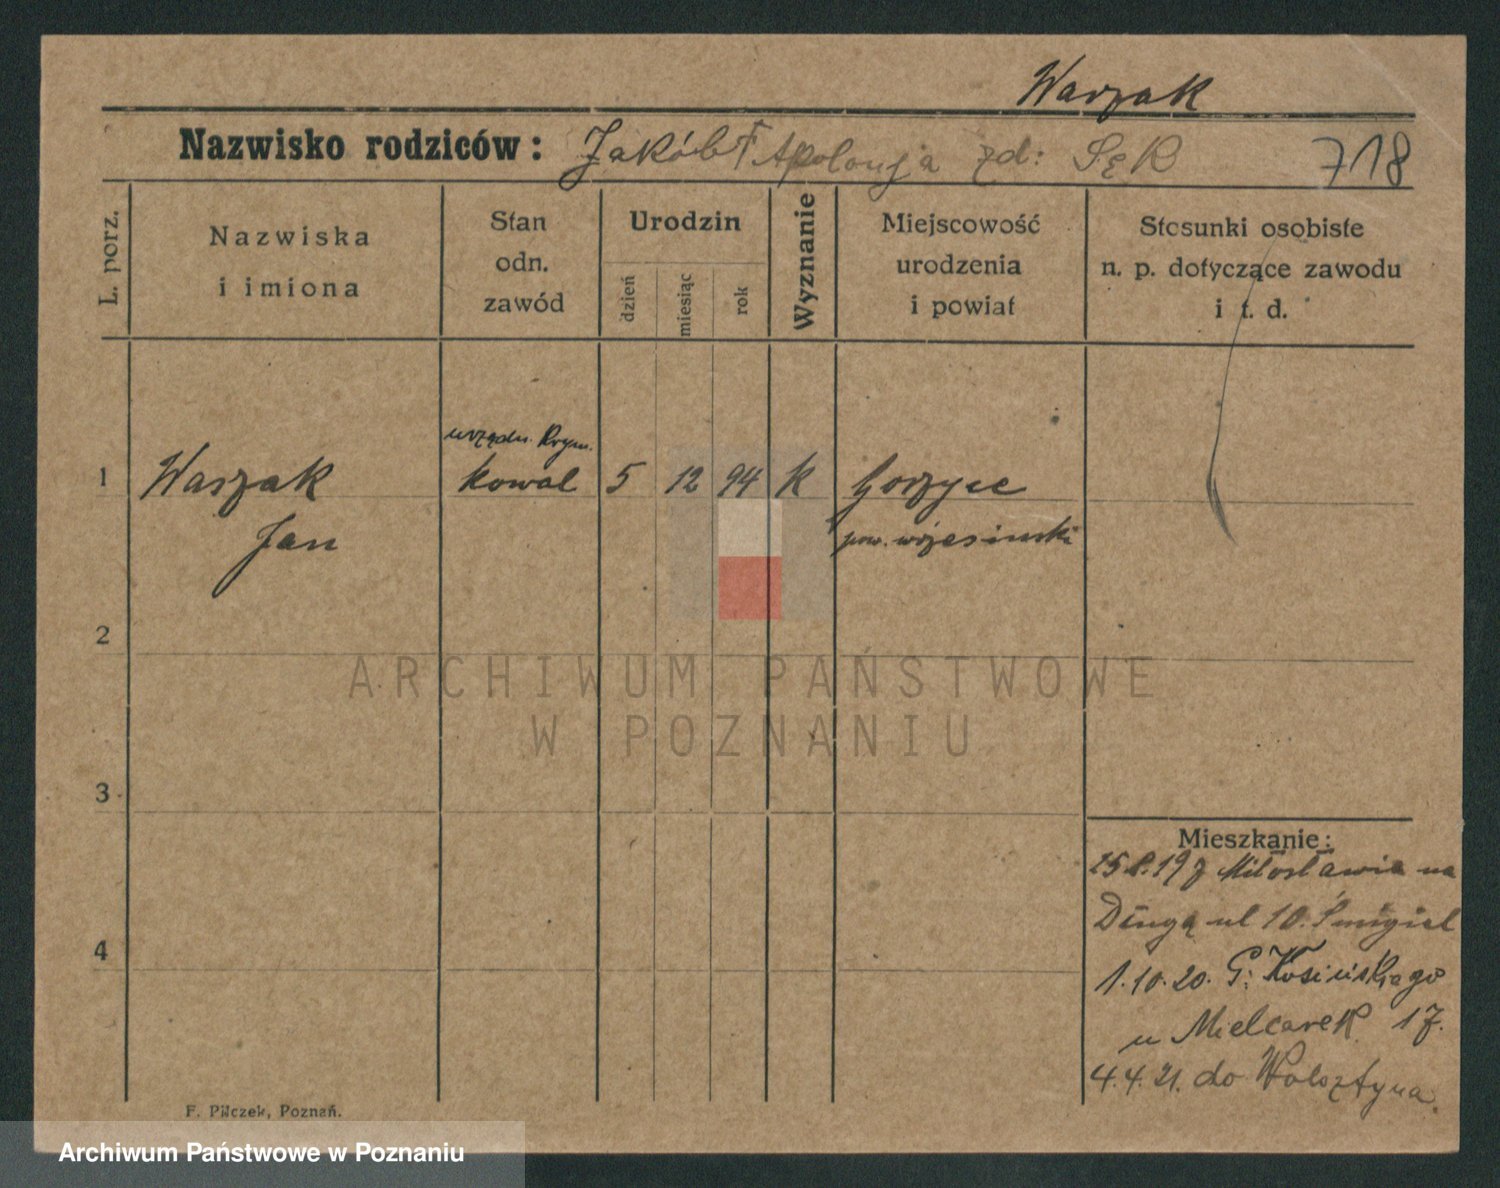 Warzak
Nazwisko rodziców: Jakób † Apolonja zd: Sęk 718
L. porz.
Nazwiska
i imiona
Stan
odn.
zawód
Urodzin
dzień
miesiąc
rok
Wyznanie
Miejscowość
urodzenia
i powiat
Stosunki osobiste
n. p. dotyczące zawodu
i t. d.
urzędn. Krym.
1 Warzak kowal 5 12 94 k Gorzyce
Jan pow. wrzesiński
2
ARCHIWUM PAŃSTWOWE
W POZNANIU
3
Mieszkanie:
19 z Miłosławia na
ul 10. Śmigiel
4
1.10.20. G: Kosińskiego
u Mielcarek 17.
4.4.21. do Wolsztyna.
F. Pilczek, Poznań.
Archiwum Państwowe w Poznaniu